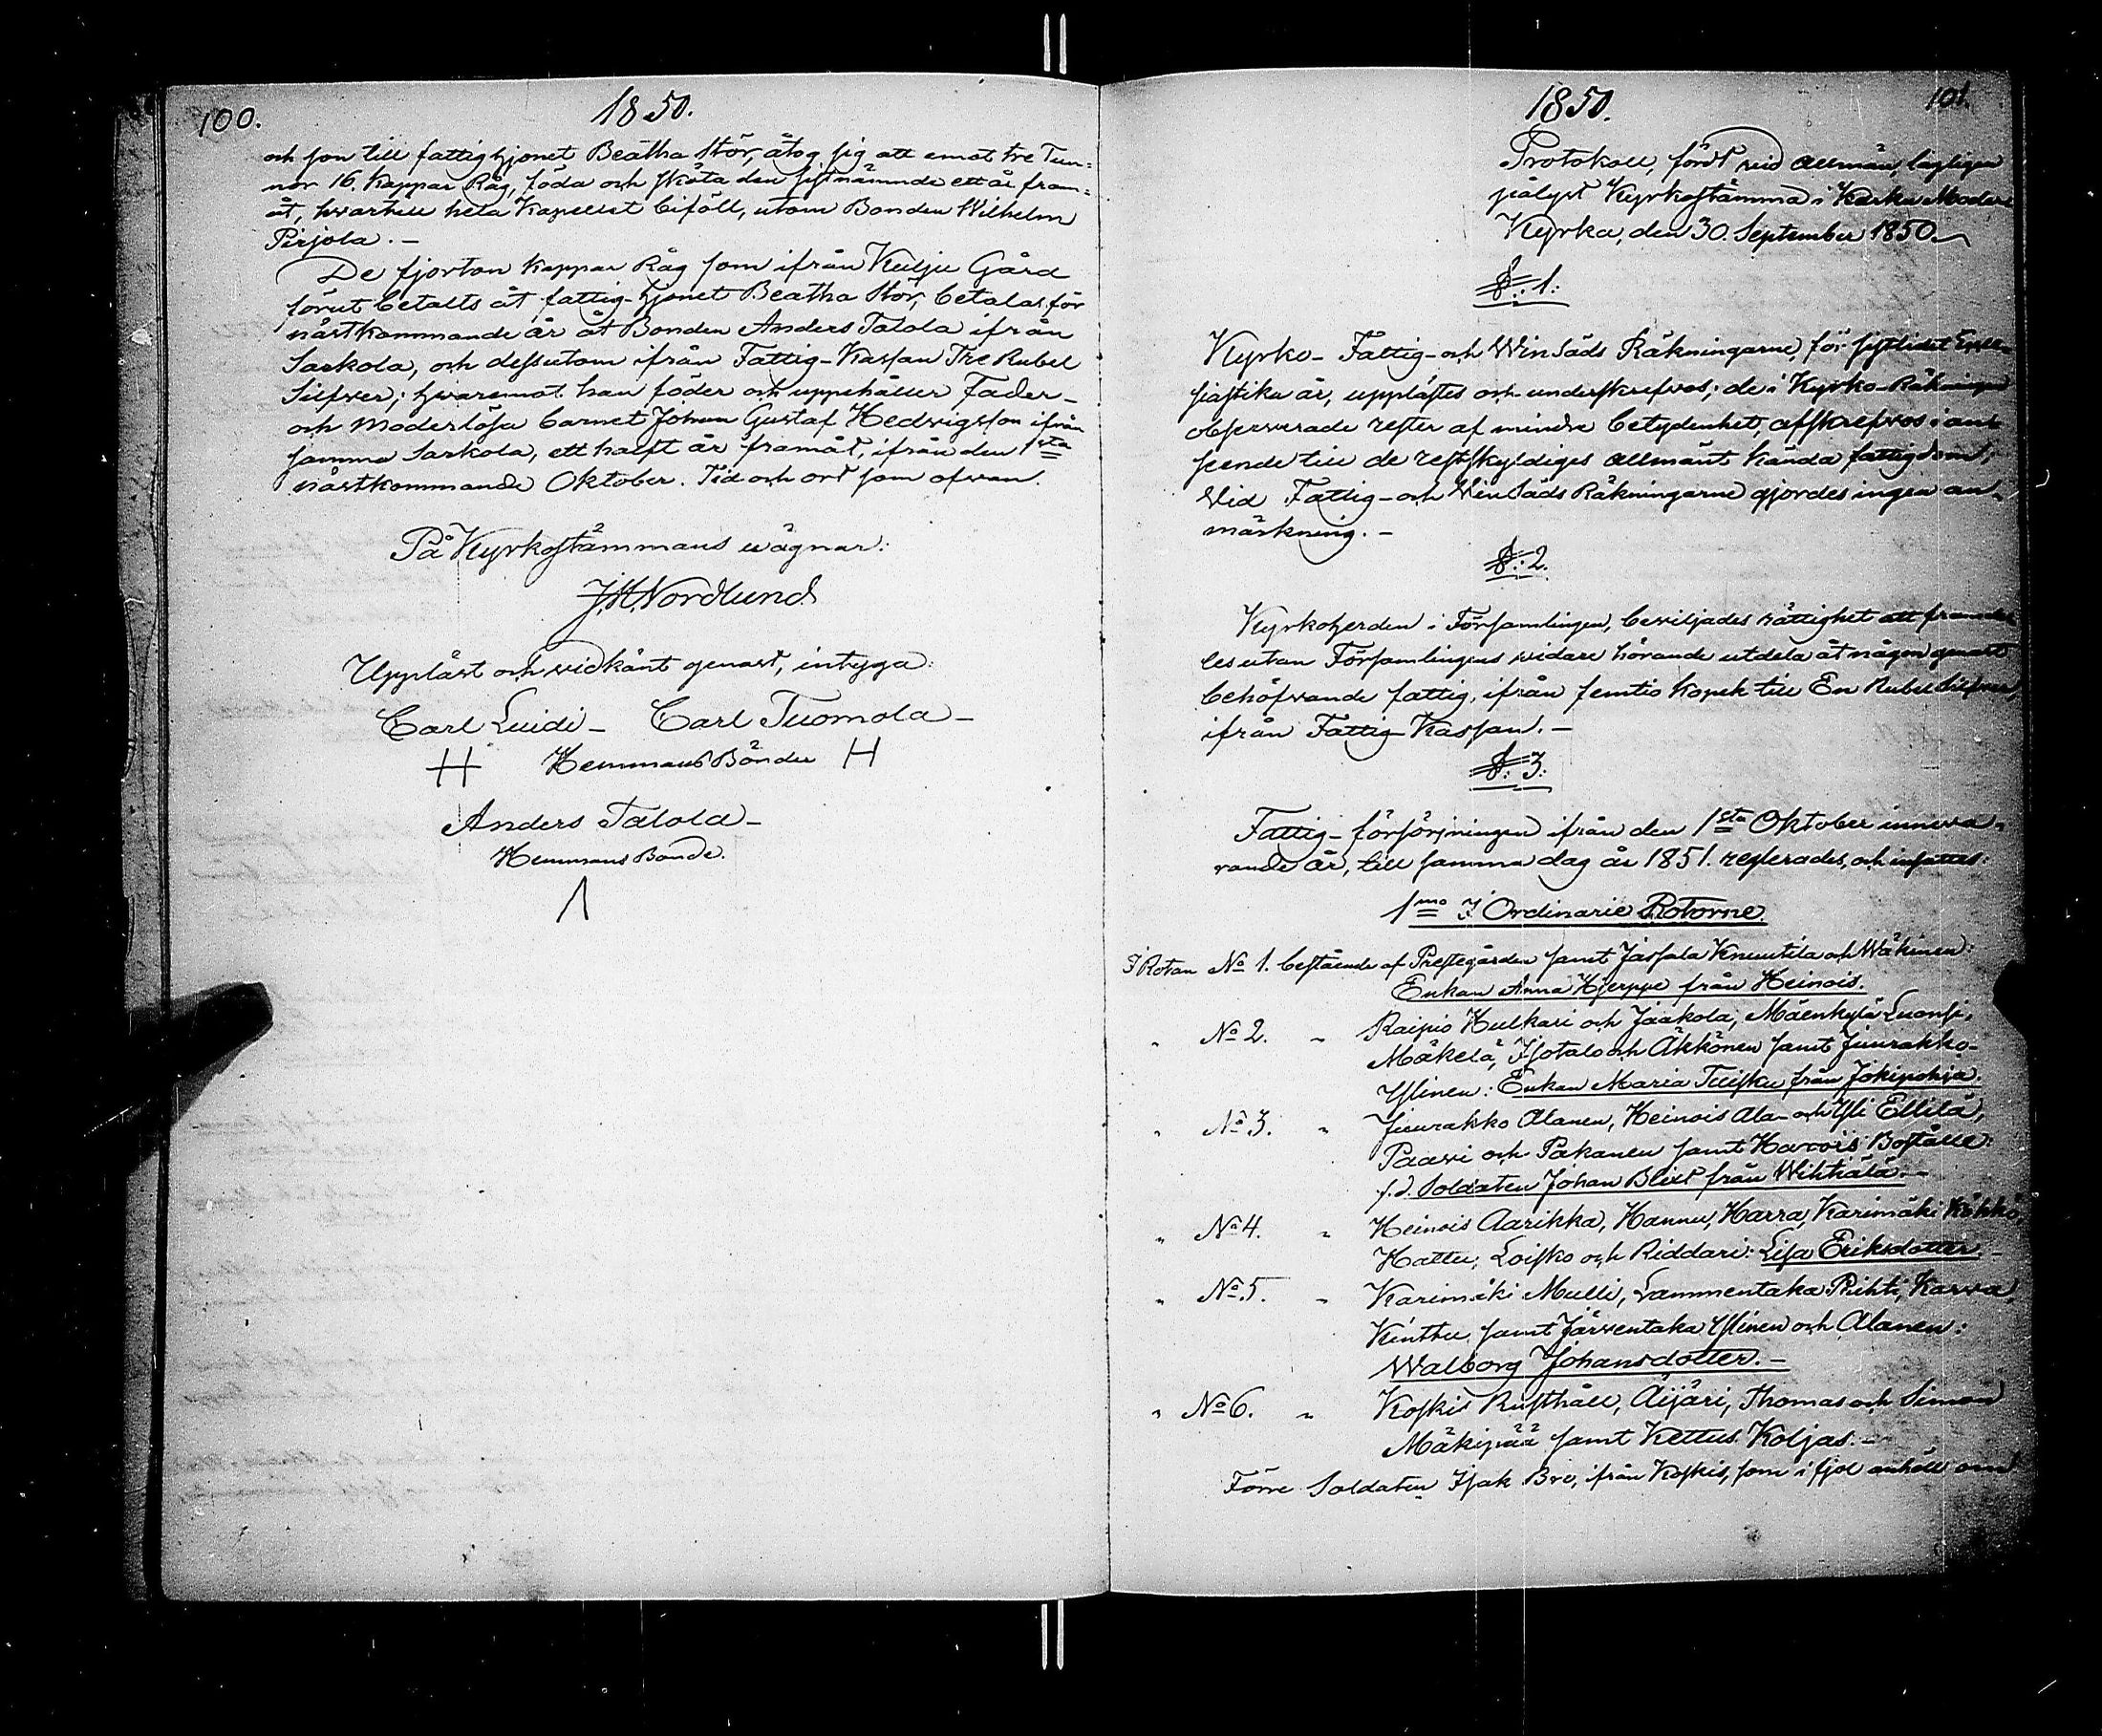 100.
1850.
och son till fattighjonet Beatha Stör, åtog sig att emot tre Tun=
nor 16. Kappar Råg, föda och sköta den sistnämnde ett år fram=
åt, hvartill hela Kapellet biföll, utom Bonden Wilhelm
Pirjola. -
De fjorton kappar Råg som ifrån Kulju Gård
förut betalts åt fattig-hjonet Beatha Stör, betalas för
nästkommande år åt Bonden Anders Talola ifrån
Sarkola, och dessutom ifrån Fattig-Kassan Tre Rubel
Silfver; hvaremot han föder och uppehåller Fader-
och moderlösa barnet Johan Gustaf Hedvigsson ifrån
samma Sarkola, ett halft år framåt, ifrån den 1sta
nästkommande Oktober. Tid och ort som ofvan.
På Kyrkostämmans vägnar:
J.H. Nordlund
Uppläst och vidkänt genast, intyga:
Carl Luidi - Carl Tuomola -
H Hemmans Bönder H
Anders Talola -
Hemmans Bonde.
1850.
101.
Protokoll, fördt vid allmän, lagligen
pålyst Kyrkostämma i Karku Moder
Kyrka, den 30. September 1850.
§: 1:
Kyrko- Fattig- och WinSäds Räkningarne, för sistlidet Eccle-
siastika år, upplästes och underskrefvos; de i Kyrko-Räkningen
observerade rester af mindre betydenhet, afskrefvos i an-
seende till de restskyldiges allmänt kända fattigdom;
Vid Fattig- och WinSäds Räkningarne gjordes ingen an-
märkning. -
§: 2.
Kyrkoherden i Församlingen, beviljades rättighet att framde-
les utan Församlingens vidare hörande utdela åt någon genast
behöfvande fattig, ifrån femtio kopek till En Rubel Silfver,
ifrån Fattig-Kassan. -
§: 3:
Fattig-försörjningen ifrån den 1sta Oktober inneva-
rande år, till samma dag år 1851. reglerades, och insattes:
1mo I Ordinarie Rotorne.
I Rotan No 1. bestående af Prestegården samt Jassala Knuutila och Wäkinen:
Enkan Anna Hjerppe från Heinois.
" No 2. " Raipio Hulkari och Jaakola, Mäenkylä Luonsi,
Mäkelä, Isotalo och Äkkönen samt Juurakko-
Yslinen: Enkan Maria Tuisku från Jokipohja.
" No 3. " Juurakko Alanen, Heinois Ala- och Yli Ellilä,
Paavi och Pakanen samt Harois Boställe:
f.d. Soldaten Johan Blixt från Wihtiälä. -
" No 4. " Heinois Aarikka, Hannu, Harra, Karimäki Kökkö,
Hattu, Loisko och Riddari: Lisa Eriksdotter.
" No 5. " Karimäki Mulli, Lammentaka Prihti, Karva,
Kinttu, samt Järventaka Yslinen och Alanen:
Walborg Johansdotter. -
" No 6. " Koskis Rusthåll, Äijäri, Thomas och Simon
Mäkipää samt Kettus Koljas. -
Förre Soldaten Isak Bro, ifrån Koskis, som i fjol anhöll om